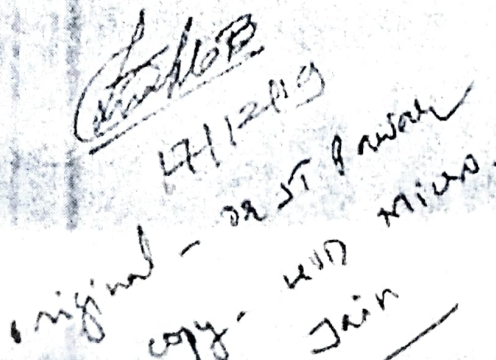 17/12/19
original - Dr ST
copy - HOD Micro.
Jain